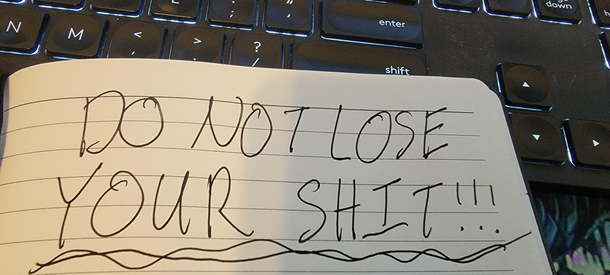 N M < , > . ? / " ' enter
shift
down
DO NOT LOSE
YOUR SHIT!!!